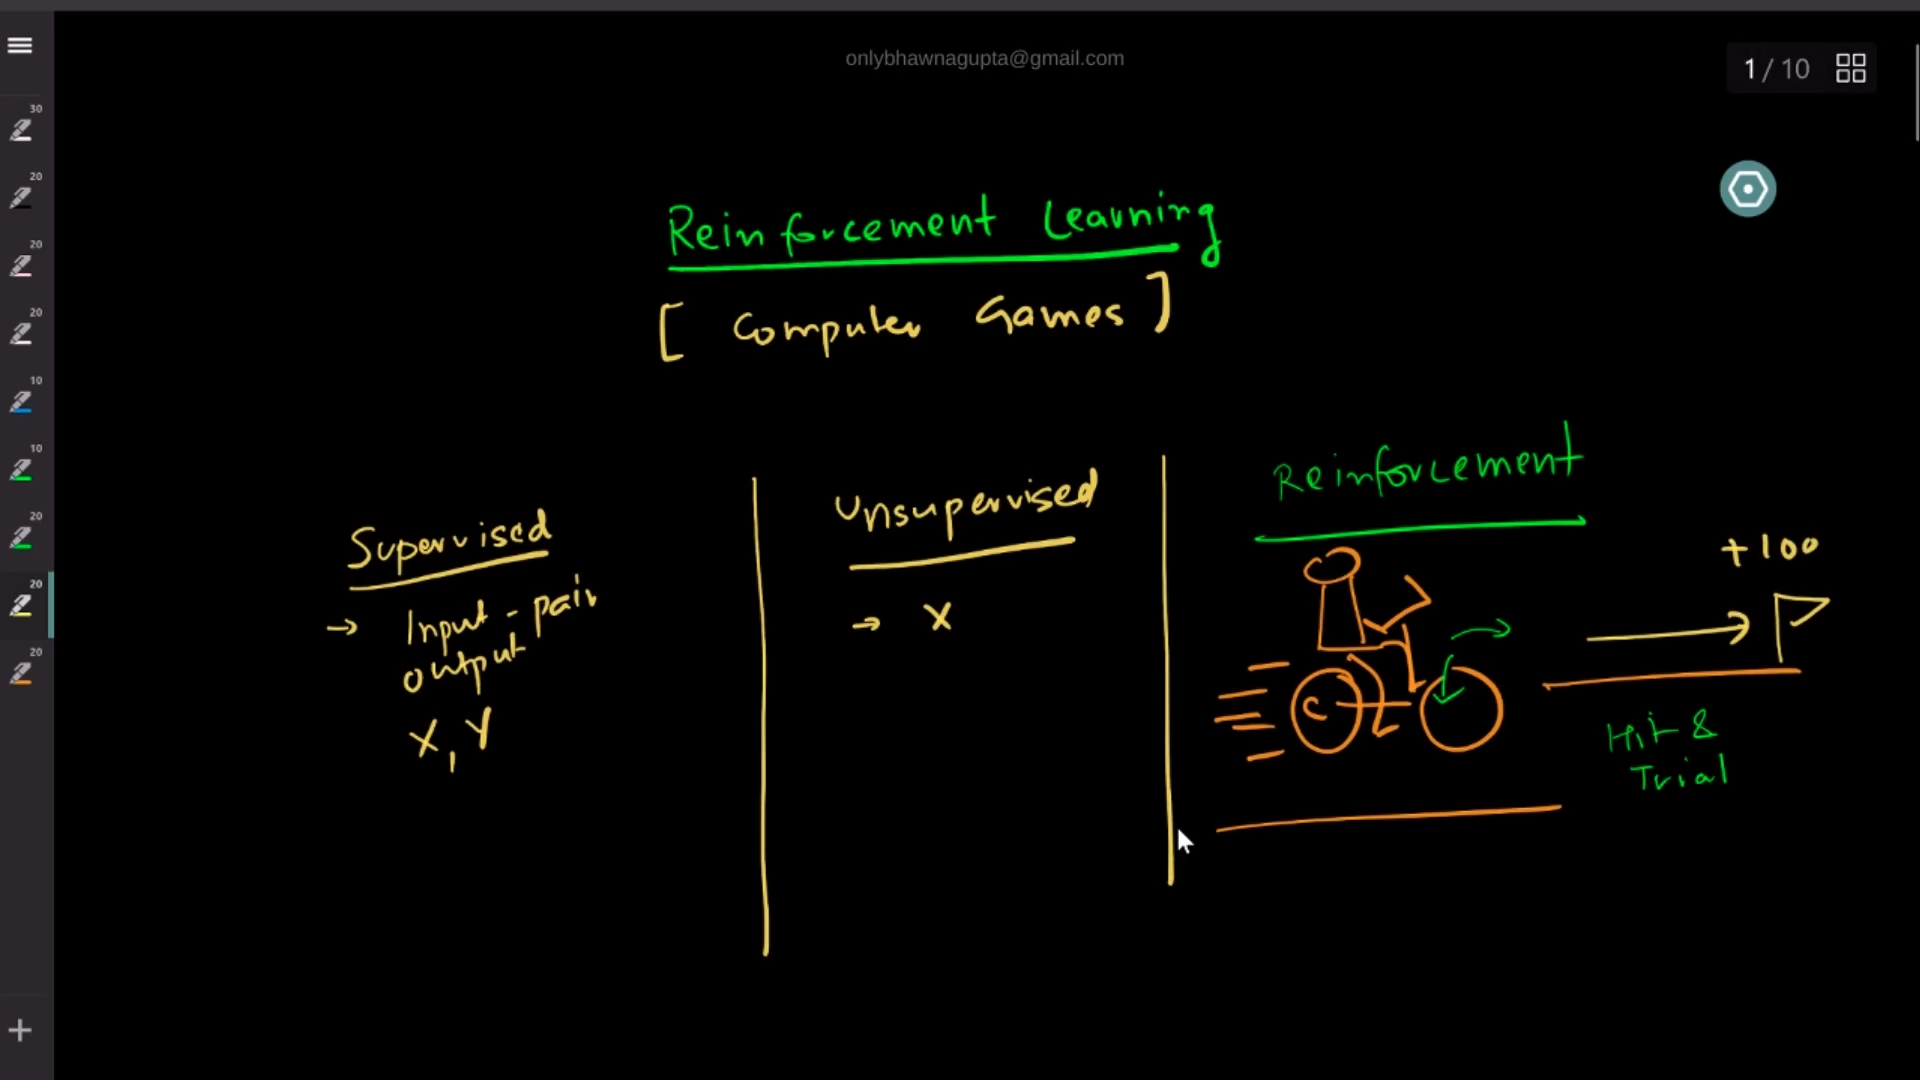 onlybhawnagupta@gmail.com
1 / 10
30
20
20
20
10
10
20
20
20
Reinforcement Learning
[ Computer Games ]
Supervised
→ Input - pair
output
X, Y
Unsupervised
→ X
Reinforcement
+100
C
Hit &
Trial